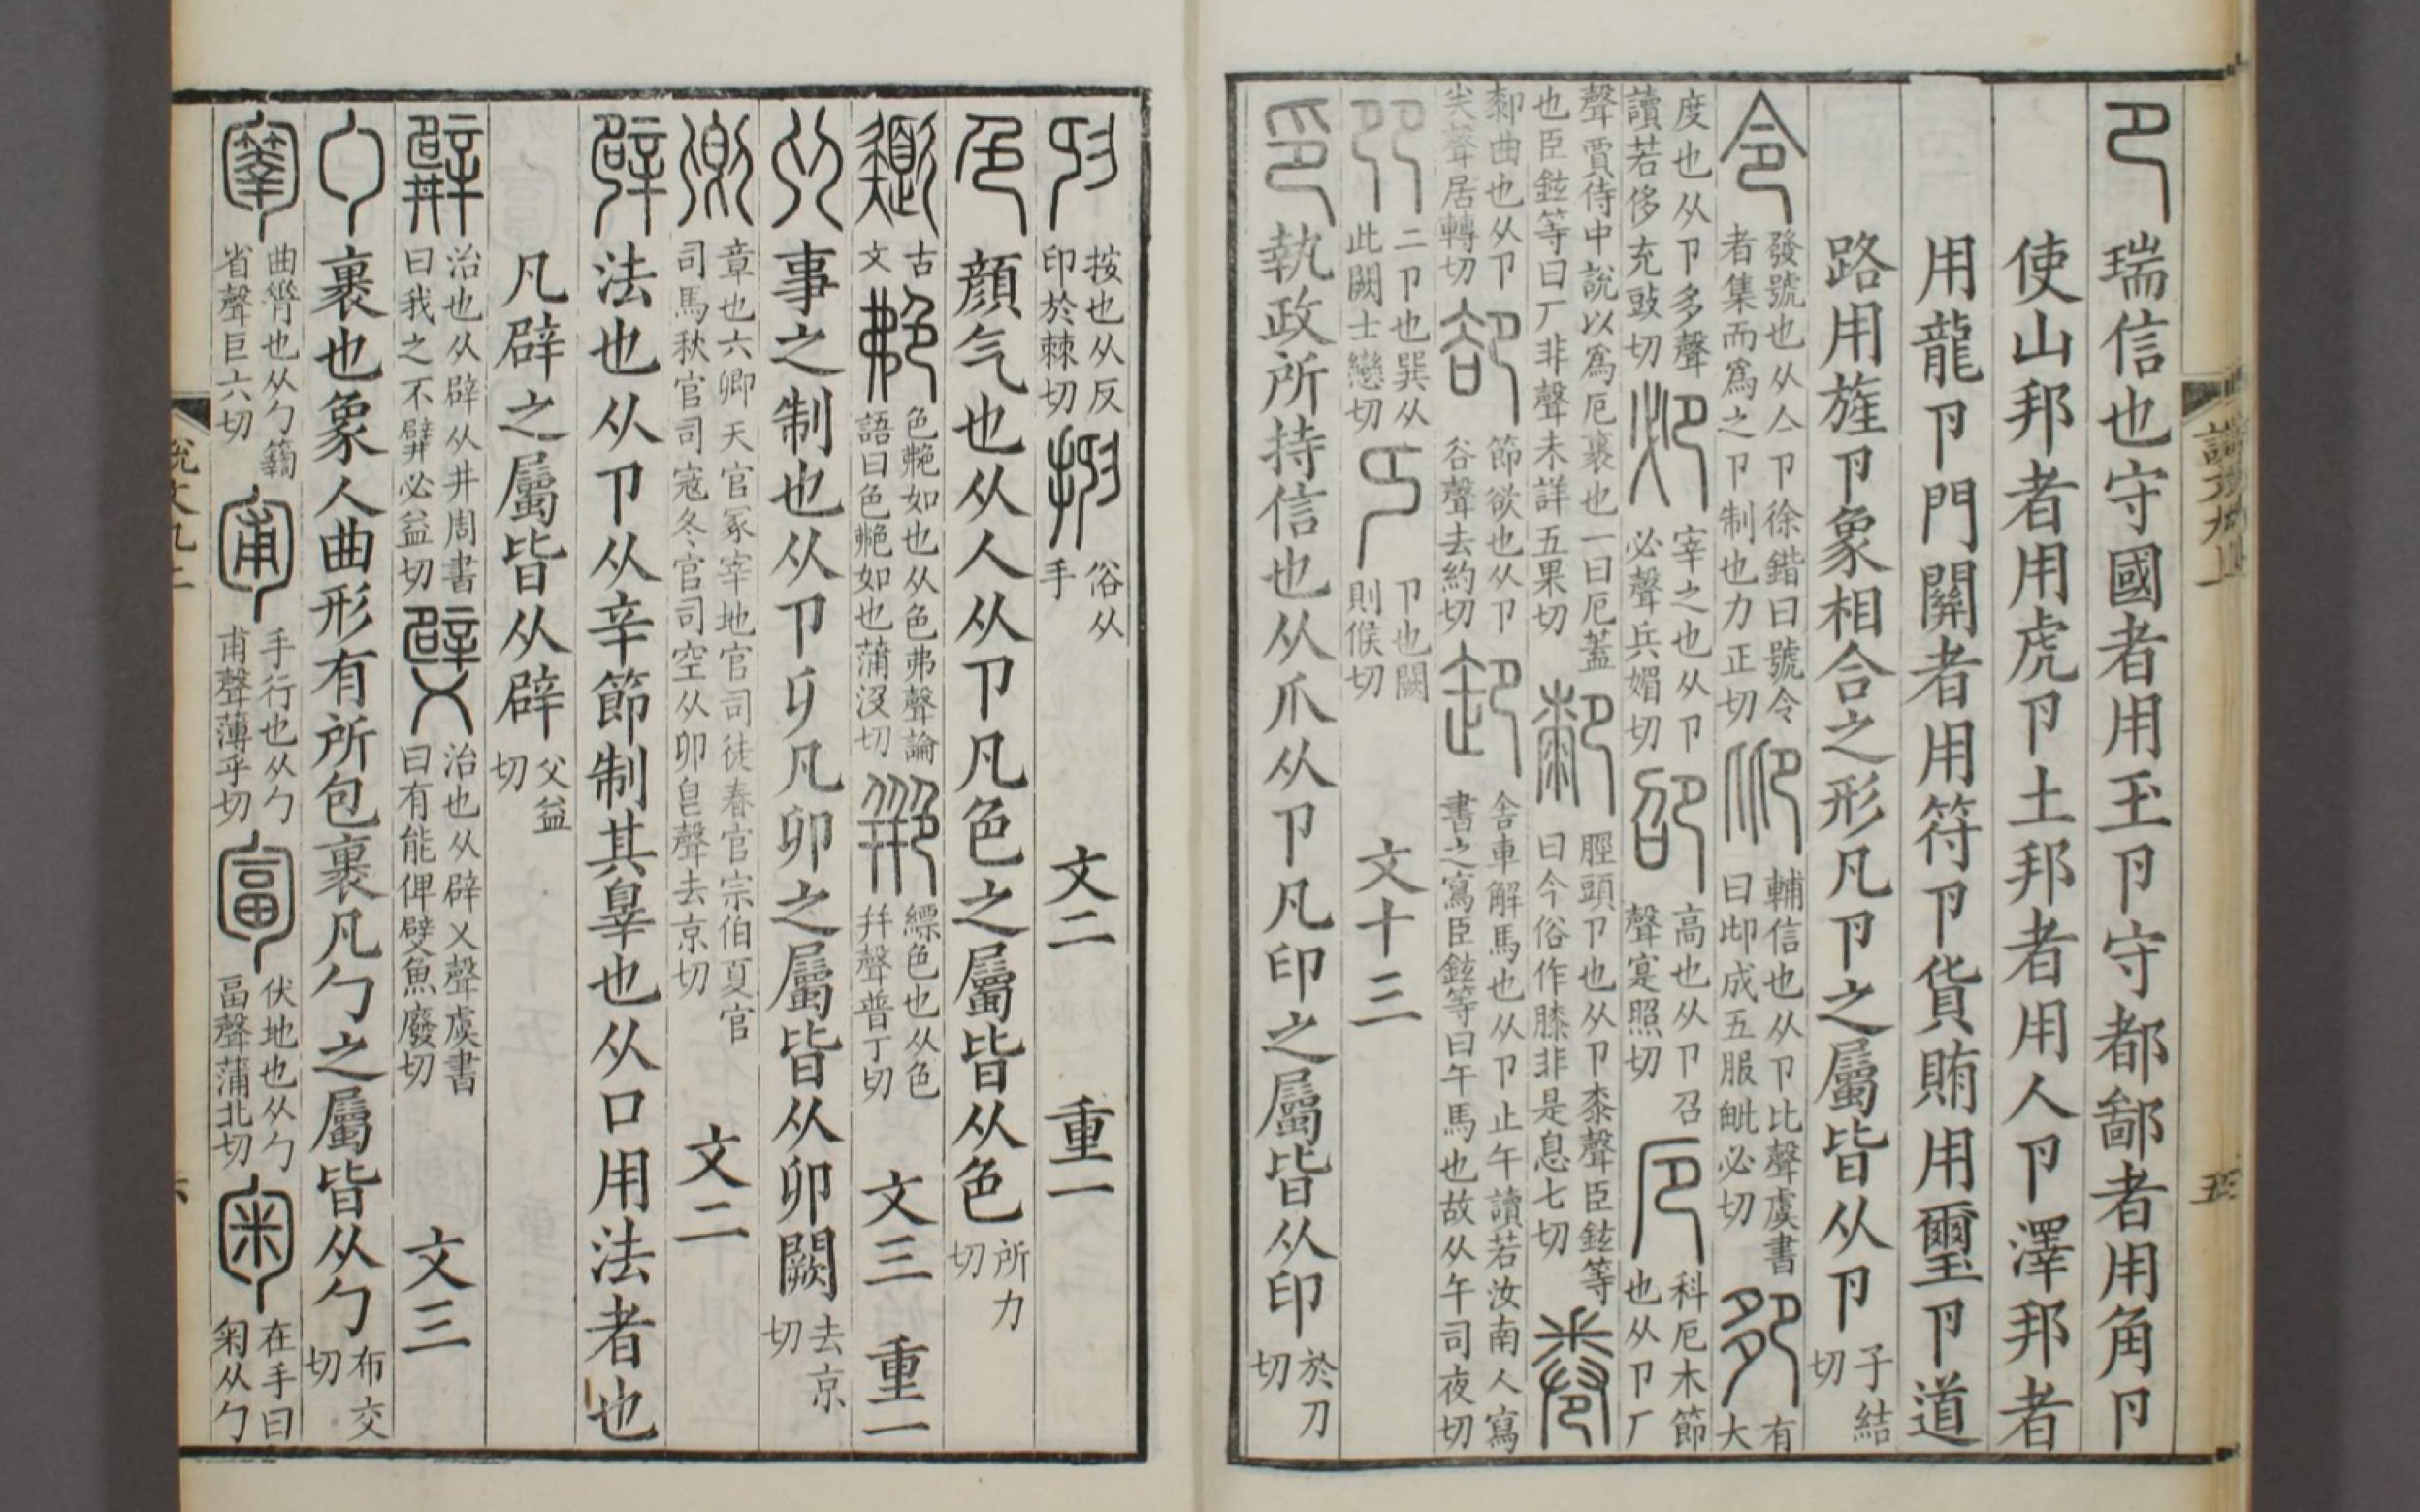 卪 瑞信也守國者用玉卪守都鄙者用角卪
使山邦者用虎卪土邦者用人卪澤邦者
用龍卪門關者用符卪貨賄用璽卪道
路用旌卪象相合之形凡卪之屬皆从卪 子結切
令 發號也从亼卪徐鍇曰號令者集而爲之卪制也力正切 𠨒 輔信也从卪比聲虞書曰𠨒成五服毗必切 𠨘 有大
度也从卪多聲讀若侈充豉切 𠨜 宰之也从卪必聲兵媚切 卲 高也从卪召聲寔照切 厄 科厄木節也从卪厂
聲賈侍中說以爲厄裹也一曰厄蓋也臣鉉等曰厂非聲未詳五果切 厀 脛頭卪也从卪桼聲臣鉉等曰今俗作膝非是息七切 卷
厀曲也从卪𢍏聲居轉切 卻 節欲也从卪谷聲去約切 卸 舍車解馬也从卪止午讀若汝南人寫書之寫臣鉉等曰午馬也故从午司夜切
𠨎 二卪也巽从此闕士戀切 𠨍 卪也闕則候切 文十三
印 執政所持信也从爪从卪凡印之屬皆从印 於刃切
𢑏 按也从反印於棘切 抑 俗从手 文二 重一
色 顏气也从人从卪凡色之屬皆从色 所力切
𩒻 古文 艴 色艴如也从色弗聲論語曰色艴如也蒲沒切 艵 縹色也从色幷聲普丁切 文三 重一
卯 事之制也从卪𠨎凡卯之屬皆从卯闕 去京切
卿 章也六卿天官冢宰地官司徒春官宗伯夏官司馬秋官司寇冬官司空从卯皀聲去京切 文二
辟 法也从卪从辛節制其辠也从口用法者也
凡辟之屬皆从辟 父益切
𨐨 治也从辟从井周書曰我之不𨐨必益切 𨐢 治也从辟乂聲虞書曰有能俾𨐢魚廢切 文三
勹 裹也象人曲形有所包裹凡勹之屬皆从勹 布交切
𥷚 曲脊也从勹𥷚省聲巨六切 匍 手行也从勹甫聲薄乎切 匐 伏地也从勹畐聲蒲北切 匊 在手曰匊从勹